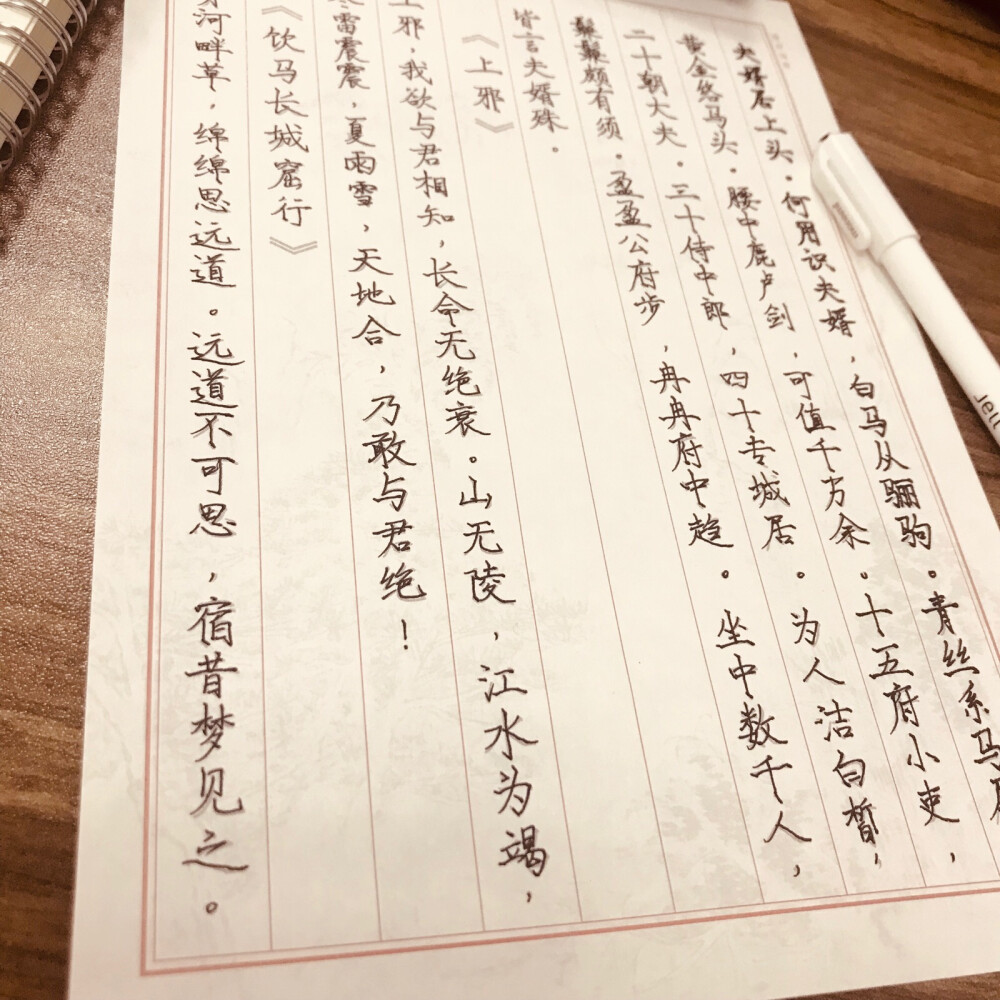 夫婿居上头。何用识夫婿，白马从骊驹。青丝系马尾
黄金络马头。腰中鹿卢剑，可值千万余。十五府小吏，
二十朝大夫。三十侍中郎，四十专城居。为人洁白皙，
鬑鬑颇有须。盈盈公府步，冉冉府中趋。坐中数千人，
皆言夫婿殊。
《上邪》
上邪，我欲与君相知，长命无绝衰。山无陵，江水为竭，
冬雷震震，夏雨雪，天地合，乃敢与君绝！
《饮马长城窟行》
河畔草，绵绵思远道。远道不可思，宿昔梦见之。